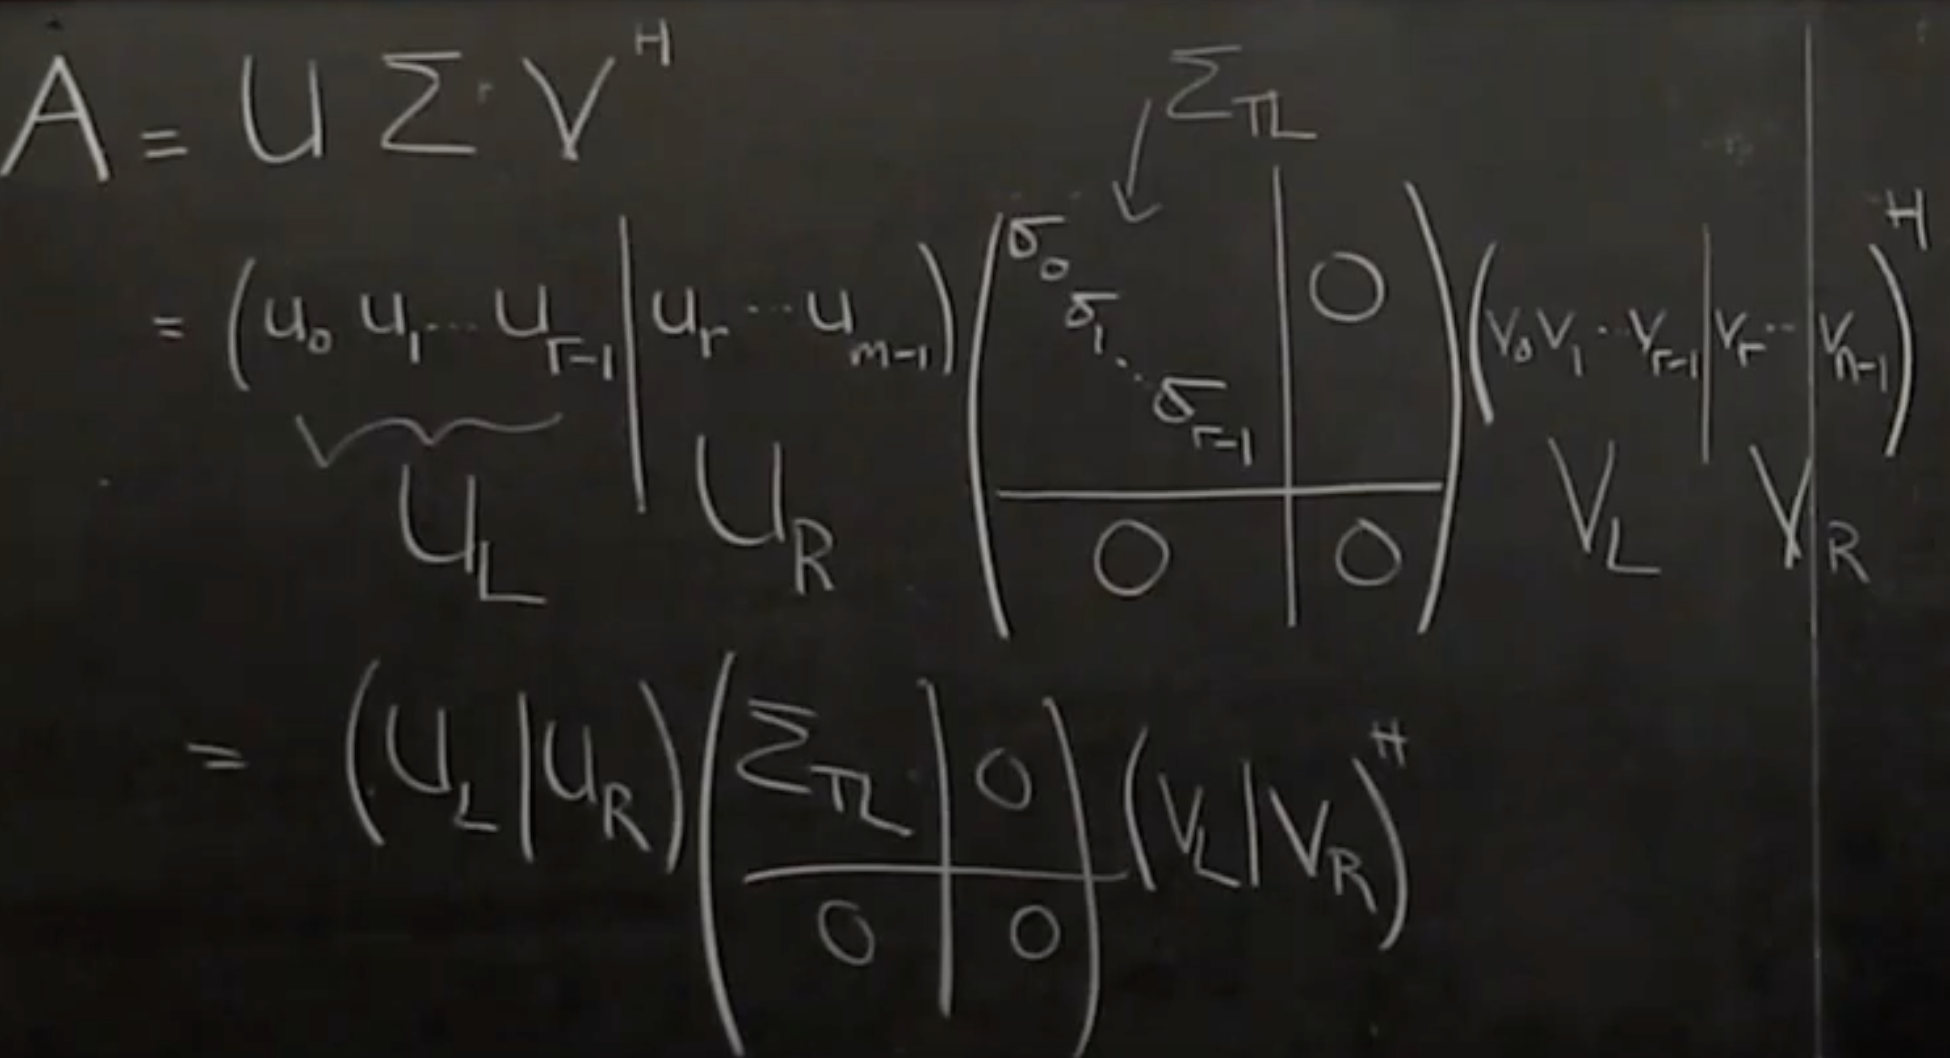 A = U Σ V^H
Σ_TL
= (u_0 u_1 ... u_{r-1} | u_r ... u_{m-1}) (σ_0 σ_1 ... σ_{r-1} | 0 / 0 | 0) (v_0 v_1 ... v_{r-1} | v_r ... v_{n-1})^H
U_L U_R V_L V_R
= (U_L | U_R) (Σ_TL | 0 / 0 | 0) (V_L | V_R)^H